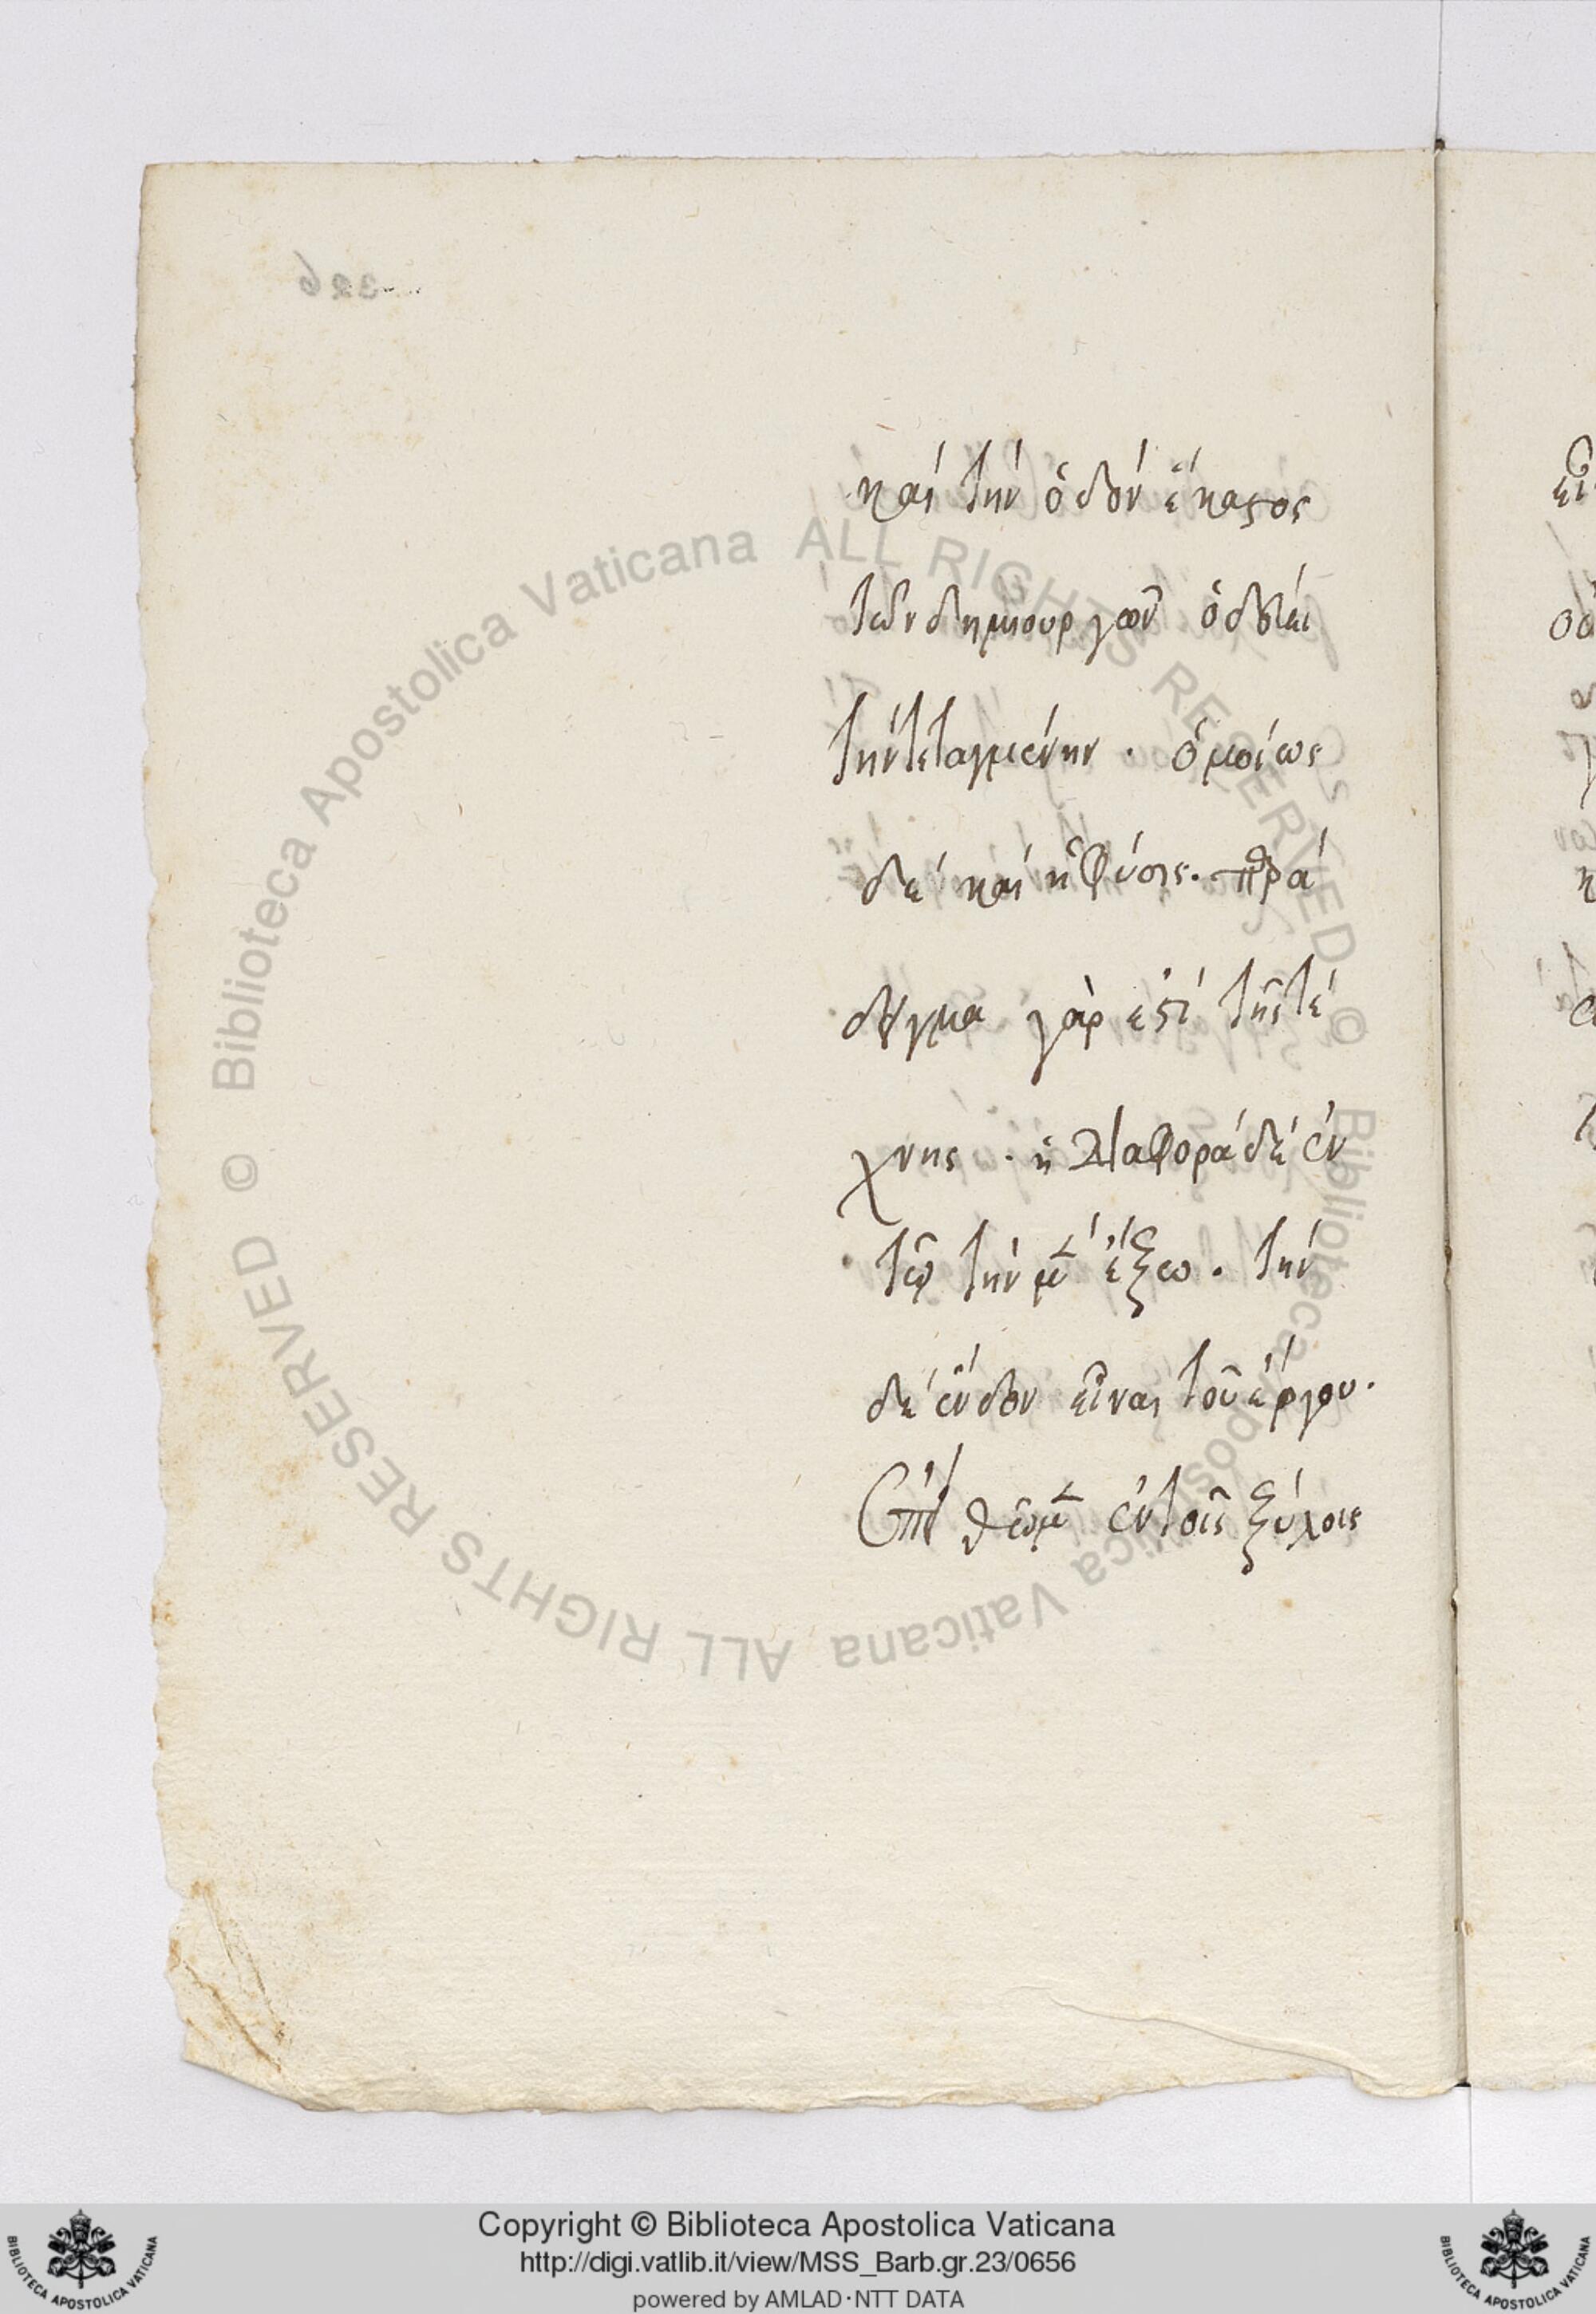 326
καὶ τὴν ὁδὸν ἕκαστος
τῶν δημιουργῶν ὁδεύει
τὴν τεταγμένην · ὁμοίως
δὲ καὶ ἡ φύσις. παρά
δειγμα γὰρ ἐστὶ τῆς τέ
χνης · ἡ διαφορὰ δὲ ἐν
τῶ τὴν μὲν ἔξω · τὴν
δὲ ἔνδον εἶναι τοῦ ἔργου.
ἐν τοῖς ξύλοις
Biblioteca Apostolica Vaticana ALL RIGHTS RESERVED ©
Biblioteca Apostolica Vaticana ALL RIGHTS RESERVED ©
Copyright © Biblioteca Apostolica Vaticana
http://digi.vatlib.it/view/MSS_Barb.gr.23/0656
powered by AMLAD·NTT DATA
BIBLIOTECA APOSTOLICA VATICANA
BIBLIOTECA APOSTOLICA VATICANA